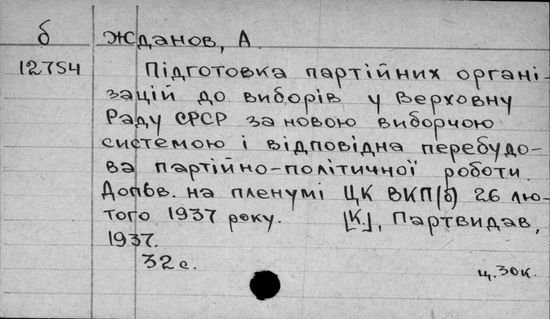 б Жданов, А.
12754 Підготовка партійних органі-
зацій до виборів у Верховну
Раду СРСР за новою виборчою
системою і відповідна перебудо-
ва партійно-політичної роботи.
Допов. на пленумі ЦК ВКП(б) 26 лю-
того 1937 року. [К.], Партвидав,
1937.
32 с. ц. 30к.